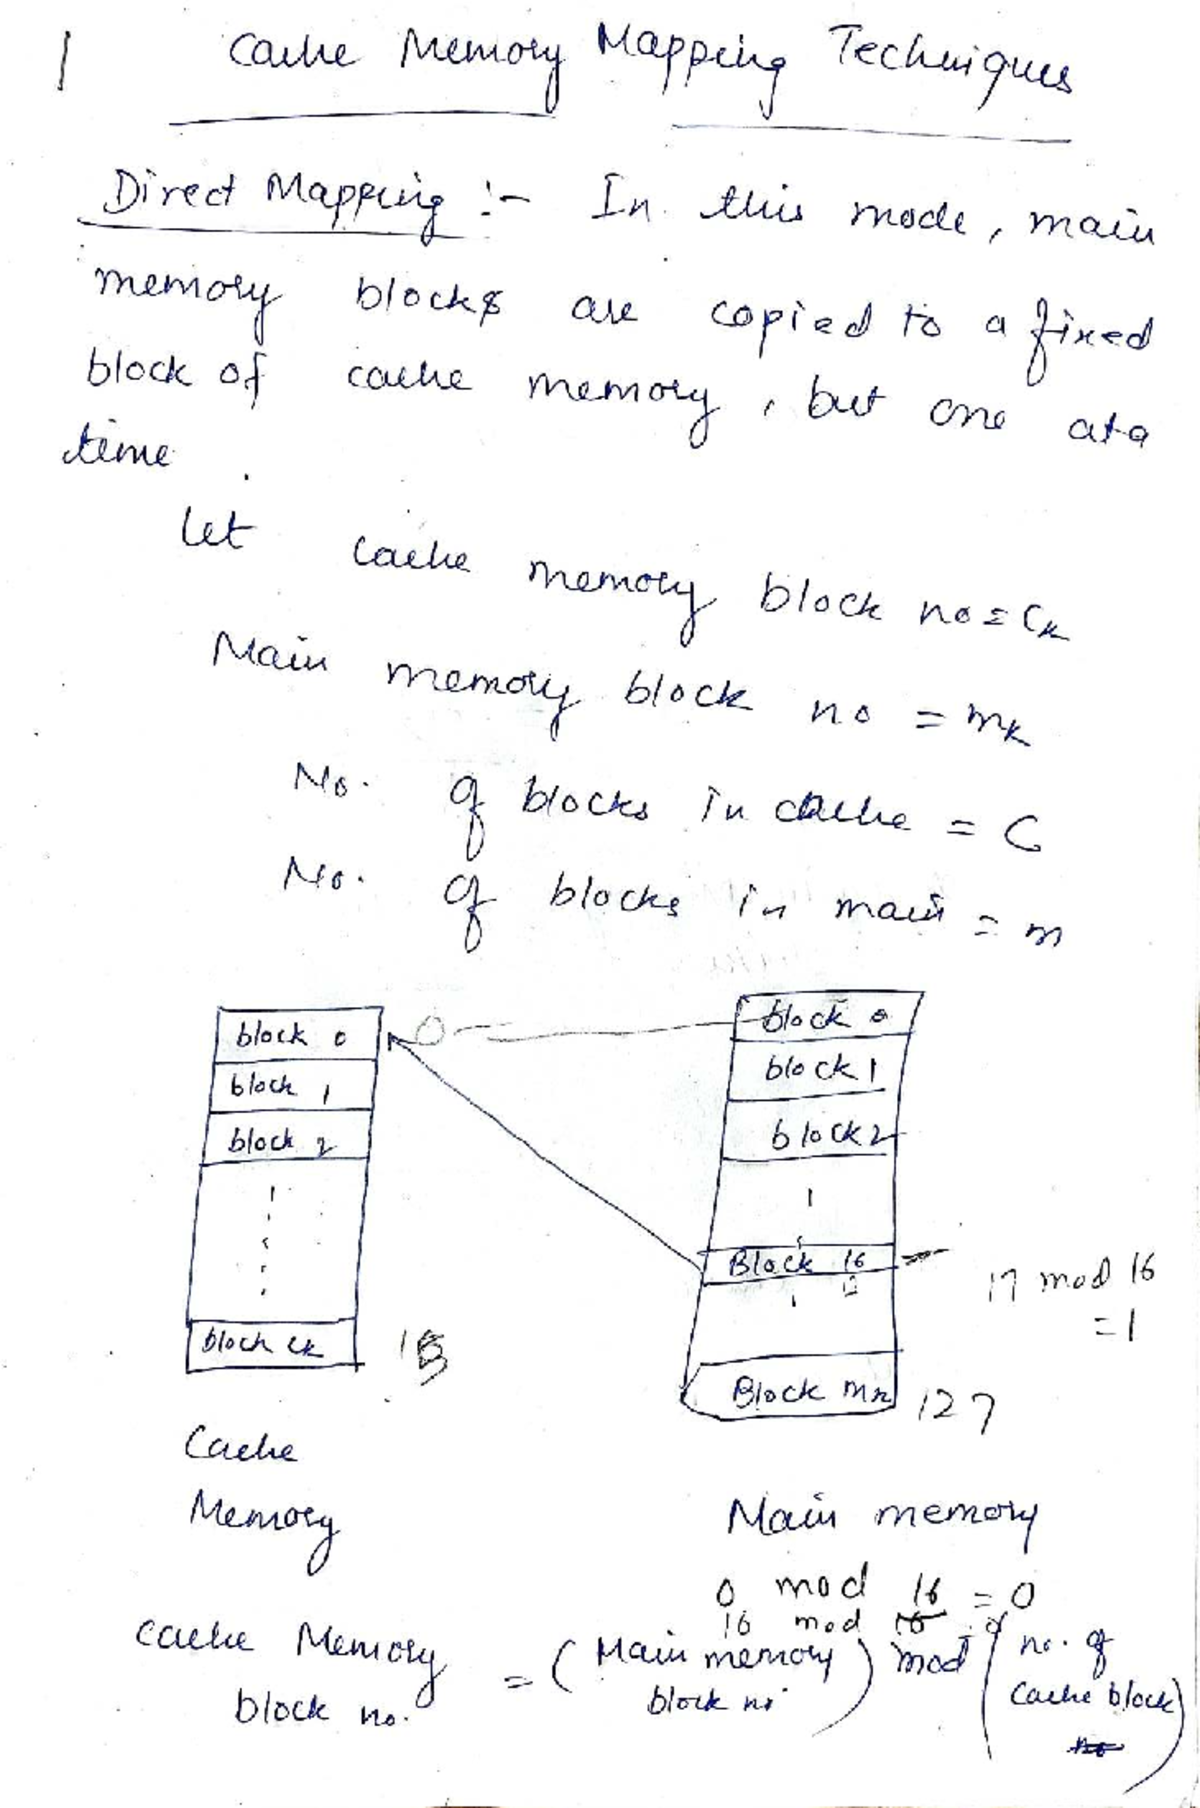 1
Cache Memory Mapping Techniques
Direct Mapping :- In this mode, main
memory blocks are copied to a fixed
block of cache memory, but one at a
time.
Let cache memory block no = Ck
Main memory block no = mk
No. of blocks in cache = C
No. of blocks in main = m
block 0
block 1
block 2
block ck
15
Cache
Memory
0
block 0
block 1
block 2
Block 16
17
Block mk
127
17 mod 16
= 1
Main memory
0 mod 16 = 0
16 mod 16 = 0
Cache Memory block no. = (Main memory block no) mod (no. of Cache block)